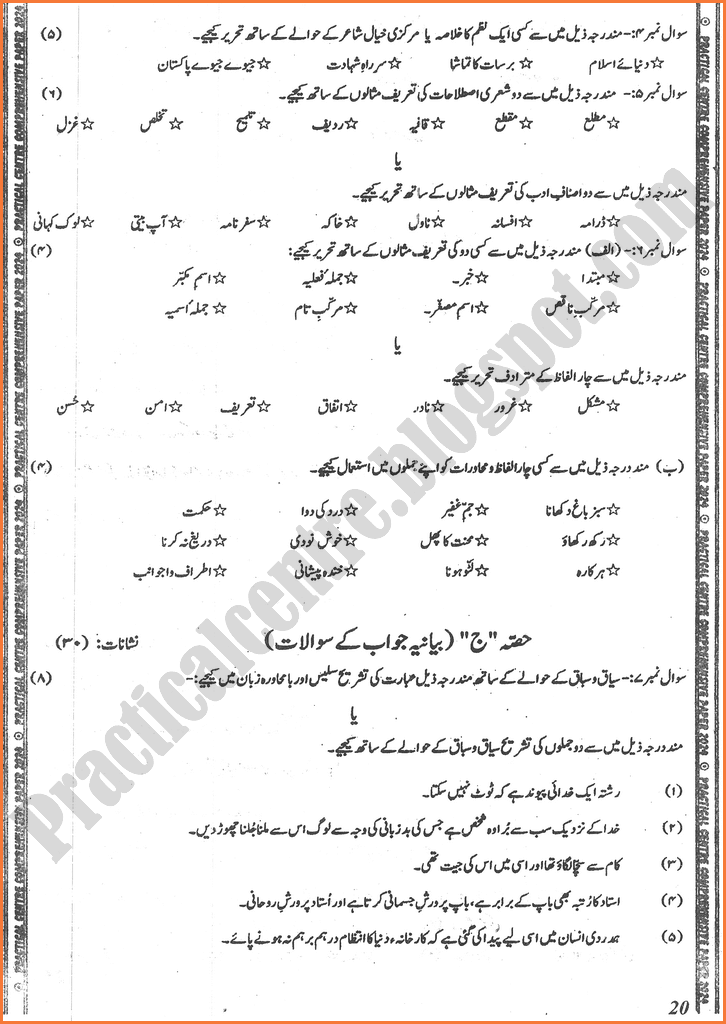 سوال نمبر ۴:- مندرجہ ذیل میں سے کسی ایک نظم کا خلاصہ یا مرکزی خیال شاعر کے حوالے کے ساتھ تحریر کیجیے۔ (۵)
☆ دنیائے اسلام ☆ برسات کا تماشا ☆ سر راہِ شہادت ☆ جیوے جیوے پاکستان
سوال نمبر ۵:- مندرجہ ذیل میں سے دو شعری اصطلاحات کی تعریف مثالوں کے ساتھ کیجیے۔ (۶)
☆ مطلع ☆ مقطع ☆ قافیہ ☆ ردیف ☆ تلمیح ☆ تخلص ☆ غزل
یا
مندرجہ ذیل میں سے دو اصنافِ ادب کی تعریف مثالوں کے ساتھ تحریر کیجیے۔
☆ ڈرامہ ☆ افسانہ ☆ ناول ☆ خاکہ ☆ سفر نامہ ☆ آپ بیتی ☆ لوک کہانی
سوال نمبر ۶:- (الف) مندرجہ ذیل میں سے کسی دو کی تعریف مثالوں کے ساتھ تحریر کیجیے: (۴)
☆ مبتدا ☆ خبر۔ ☆ جملۂ فعلیہ ☆ اسم مکبّر
☆ مرکّبِ ناقص ☆ اسمِ مصغّر۔ ☆ مرکّبِ تام ☆ جملۂ اسمیہ
یا
مندرجہ ذیل میں سے چار الفاظ کے مترادف تحریر کیجیے۔
☆ مشکل ☆ غرور ☆ نادر ☆ اتفاق ☆ تعریف ☆ امن ☆ حُسن
(ب) مندرجہ ذیل میں سے کسی چار الفاظ و محاورات کو اپنے جملوں میں استعمال کیجیے۔ (۴)
☆ سبز باغ دکھانا ☆ جمِّ غفیر ☆ درد کی دوا ☆ حکمت
☆ رکھ رکھاؤ ☆ محنت کا پھل ☆ خوش نودی ☆ دریغ نہ کرنا
☆ ہرکارہ ☆ لٹّو ہونا ☆ خندہ پیشانی ☆ اطراف و اجوانب
حصّہ "ج" (بیانیہ جواب کے سوالات) نشانات: (۳۰)
سوال نمبر ۷:- سیاق و سباق کے حوالے کے ساتھ مندرجہ ذیل عبارت کی تشریح سلیس اور بامحاورہ زبان میں کیجیے:- (۸)
یا
مندرجہ ذیل میں سے دو جملوں کی تشریح سیاق و سباق کے حوالے کے ساتھ کیجیے۔
(۱) رشتہ ایک خدائی پیوند ہے کہ ٹوٹ نہیں سکتا۔
(۲) خدا کے نزدیک سب سے بُرا وہ شخص ہے جس کی بد زبانی کی وجہ سے لوگ اس سے ملنا جُلنا چھوڑ دیں۔
(۳) کام سے سچا لگاؤ تھا اور اسی میں اس کی جیت تھی۔
(۴) استاد کا رُتبہ بھی باپ کے برابر ہے، باپ پرورشِ جسمانی کرتا ہے اور اُستاد پرورشِ روحانی۔
(۵) ہمدردی انسان میں اسی لیے پیدا کی گئی ہے کہ کارخانہء دنیا کا انتظام درہم برہم نہ ہونے پائے۔
20
PRACTICAL CENTRE COMPREHENSIVE PAPER 2024
Practicalcentre.blogspot.com